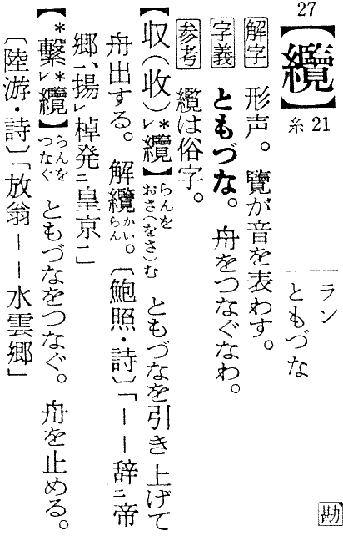 27
【纜】
糸21
ラン
ともづな
勘
解字 形声。覽が音を表わす。
字義 ともづな。舟をつなぐなわ。
参考 纜は俗字。
【収(收)レ*纜】らんをおさ(をさ)む ともづなを引き上げて
舟出する。解纜かいらん。〔鮑照・詩〕「——辞ニ帝
郷、揚レ棹発ニ皇京ニ」
【*繫レ*纜】らんをつなぐ ともづなをつなぐ。舟を止める。
〔陸游・詩〕「放翁——水雲郷」